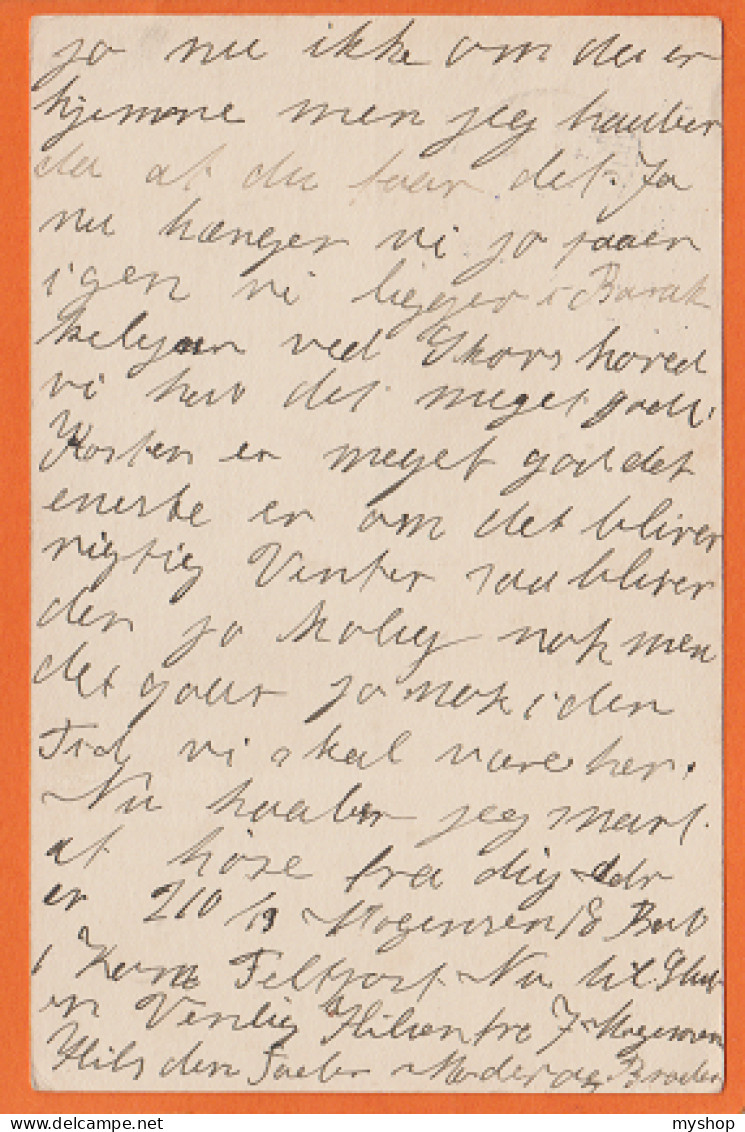 jo nu ikke om du er
hjemme men jeg haaber
da at du faar det. Ja
nu hænger vi jo paaen
igen vi ligger i Barak
kelejren ved Skovshoved
vi har det meget godt.
Kosten er meget god det
eneste er om det bliver
rigtig Vinter saa bliver
der jo kolig nok men
det gaar jo nok i den
Tid vi skal være her.
Nu haaber jeg snart
at höre fra dig Adr
er 210/19 Mogensen 18 Bat
1 Komp Feltpost. Nu til Slut
en Venlig Hilsen fra J. Mogensen
Hils din Fader Moder og Broder
myshop